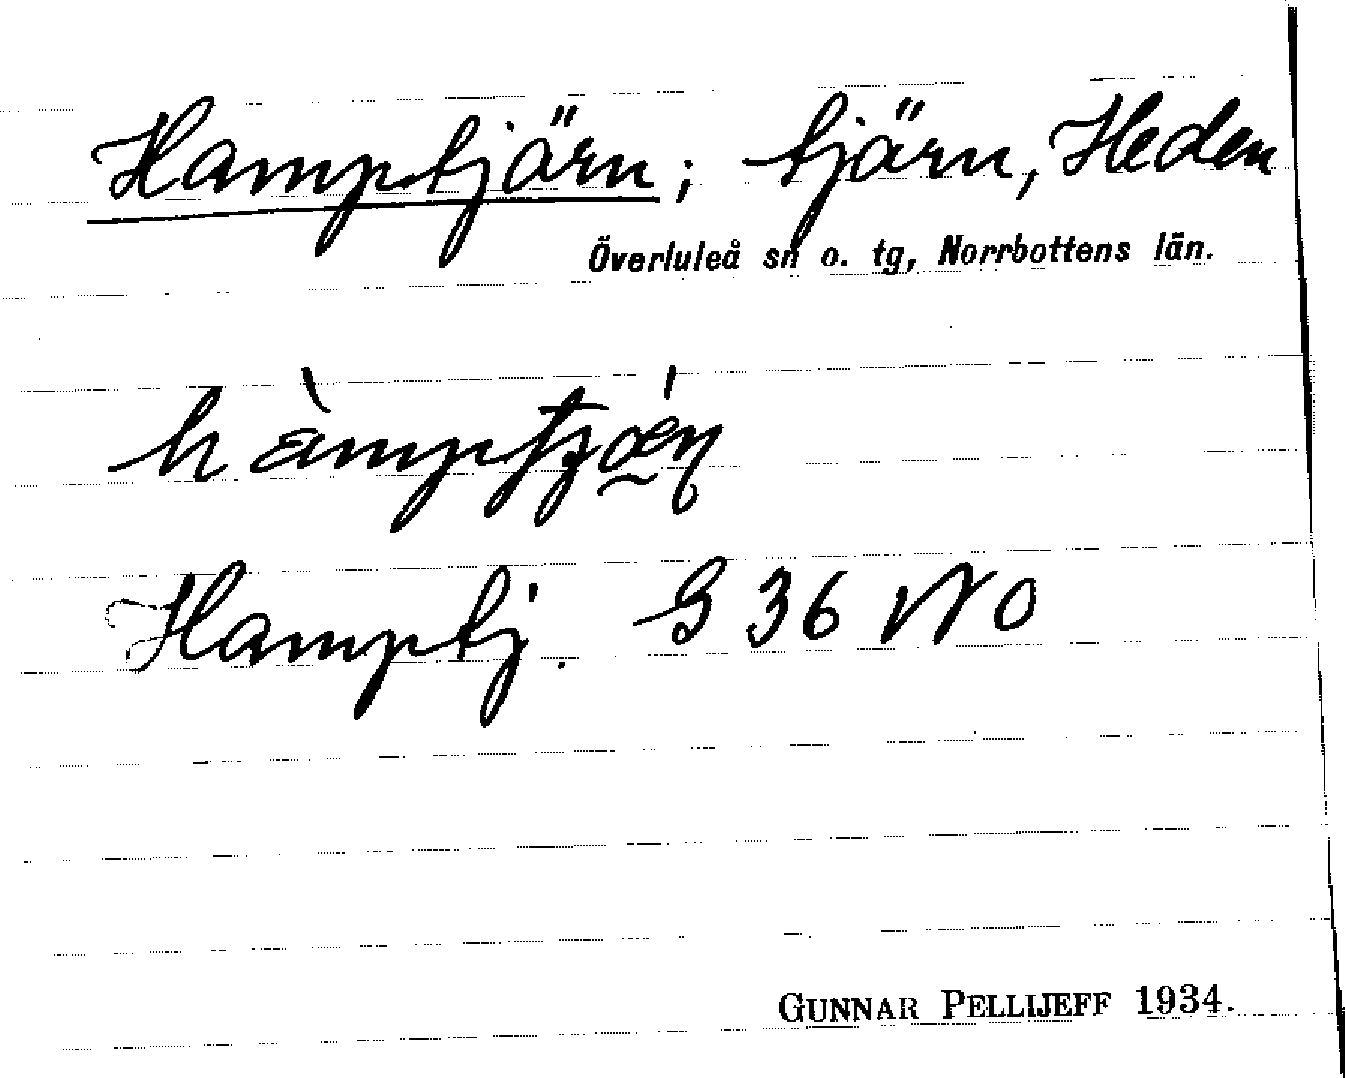 Hamptjärn; tjärn, Heden
Överluleå sn o. tg, Norrbottens län.
Hamptj. G 36 NO
GUNNAR PELLIJEFF 1934.